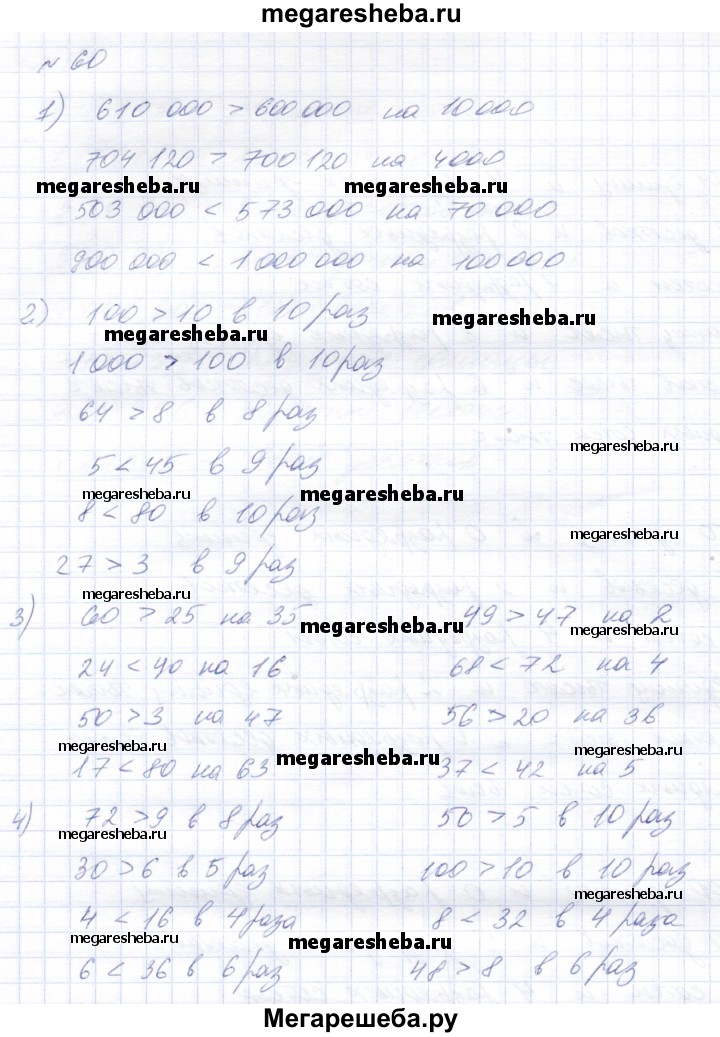 megaresheba.ru
№ 60
1) 610 000 > 600 000 на 10 000
704 120 > 700 120 на 4000
megaresheba.ru megaresheba.ru
503 000 < 573 000 на 70 000
900 000 < 1 000 000 на 100 000
2) 100 > 10 в 10 раз
megaresheba.ru megaresheba.ru
1 000 > 100 в 10 раз
64 > 8 в 8 раз
megaresheba.ru
5 < 45 в 9 раз
megaresheba.ru megaresheba.ru
8 < 80 в 10 раз
megaresheba.ru
27 > 3 в 9 раз
megaresheba.ru
3) 60 > 25 на 35 49 > 47 на 2
megaresheba.ru megaresheba.ru
24 < 40 на 16 68 < 72 на 4
50 > 3 на 47 56 > 20 на 36
megaresheba.ru megaresheba.ru megaresheba.ru
17 < 80 на 63 37 < 42 на 5
4) 72 > 9 в 8 раз 50 > 5 в 10 раз
megaresheba.ru
30 > 6 в 5 раз 100 > 10 в 10 раз
megaresheba.ru
4 < 16 в 4 раза 8 < 32 в 4 раза
megaresheba.ru megaresheba.ru
6 < 36 в 6 раз 48 > 8 в 6 раз
Мегарешеба.ру